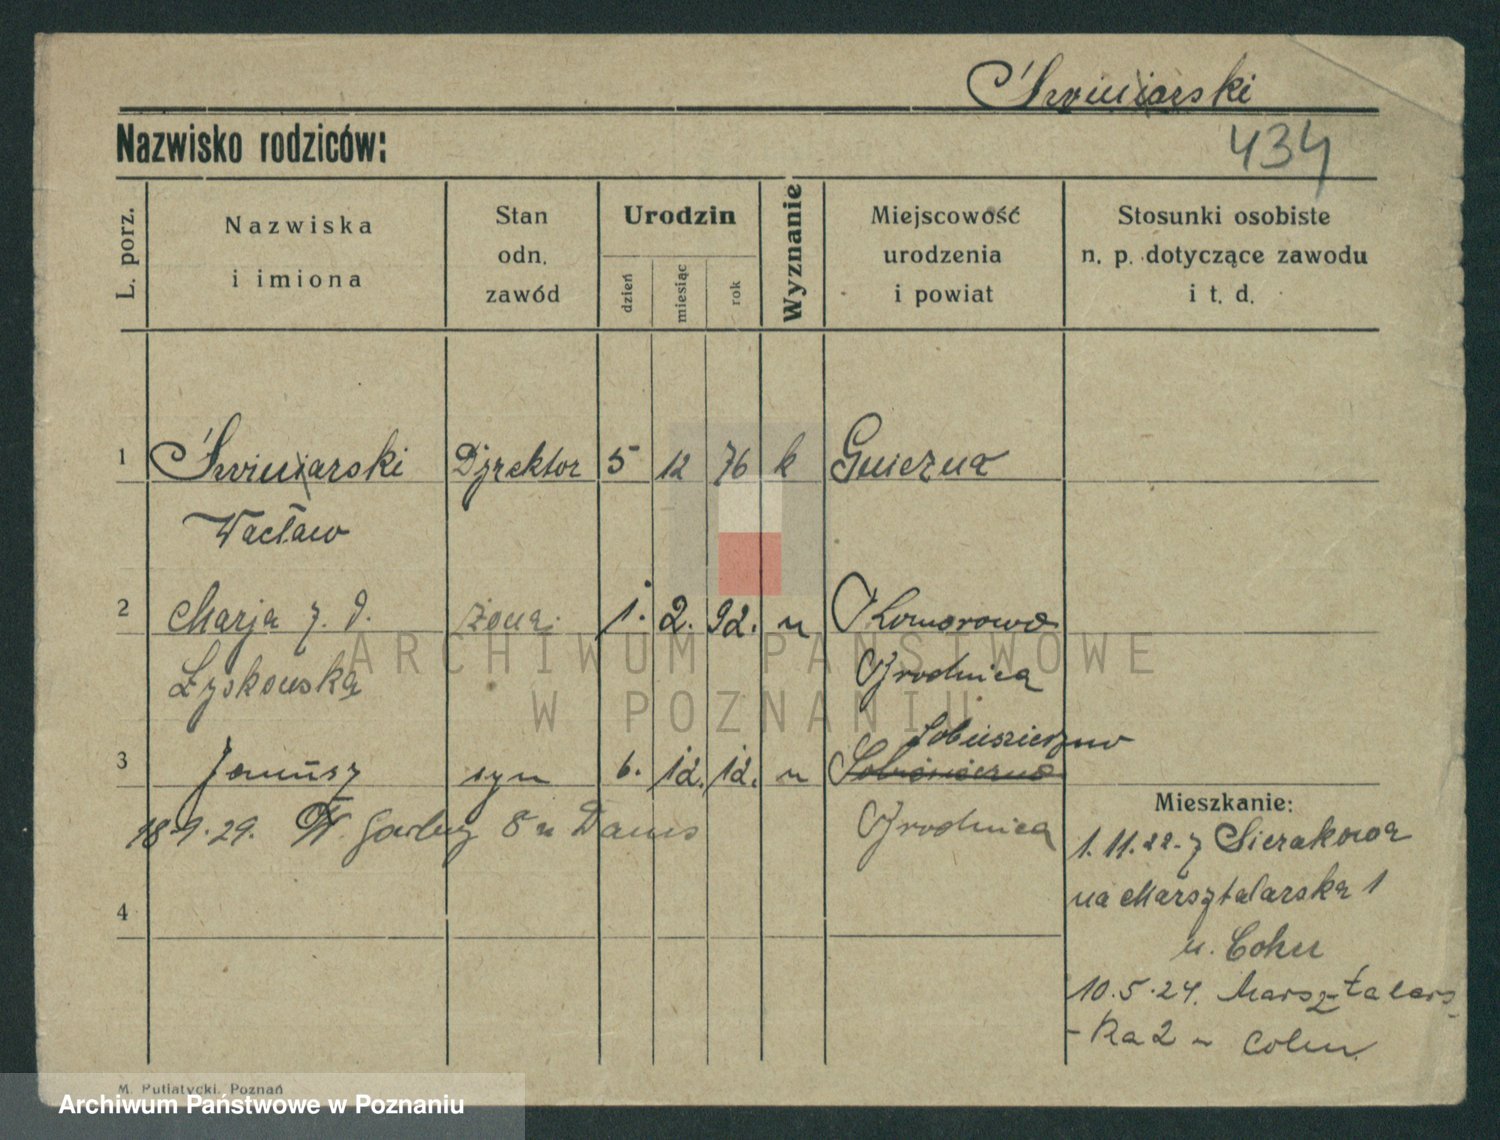 Świniarski
434
Nazwisko rodziców:
L. porz.
Nazwiska
i imiona
Stan
odn.
zawód
Urodzin
dzień
miesiąc
rok
Wyznanie
Miejscowość
urodzenia
i powiat
Stosunki osobiste
n. p. dotyczące zawodu
i t. d.
1 Świniarski Dyrektor 5 12 76 k Gniezna
Wacław
2 Marja z d. żona. 1. 2. 92. " Komorowo
Łyskowska Brodnica
Sobiesierzno
3 Janusz syn 6. 12. 12. "
18.9.29. Garbary 8 u Danus Brodnica
4
Mieszkanie:
1.11.22. z Sierakowa
na Marsztalarską 1
u. Cohn
10.5.24. Marsztalars-
-ka 2 " Cohn.
M. Putiatycki, Poznań
ARCHIWUM PAŃSTWOWE
W POZNANIU
Archiwum Państwowe w Poznaniu